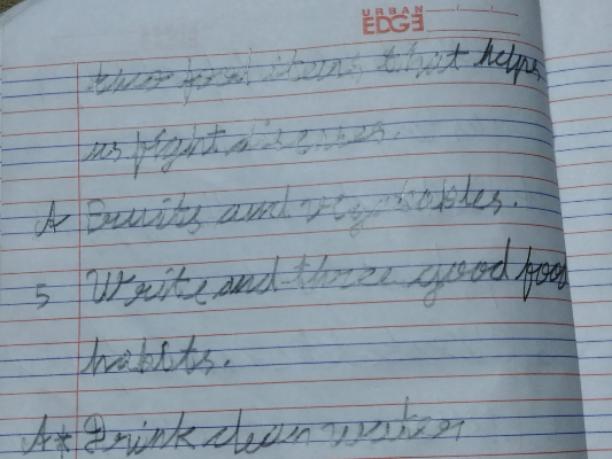 URBAN EDGE
two food items that helps
us fight diseases.
A Fruits and vegetables.
5 Write and three good food
habits.
A* Drink clean water